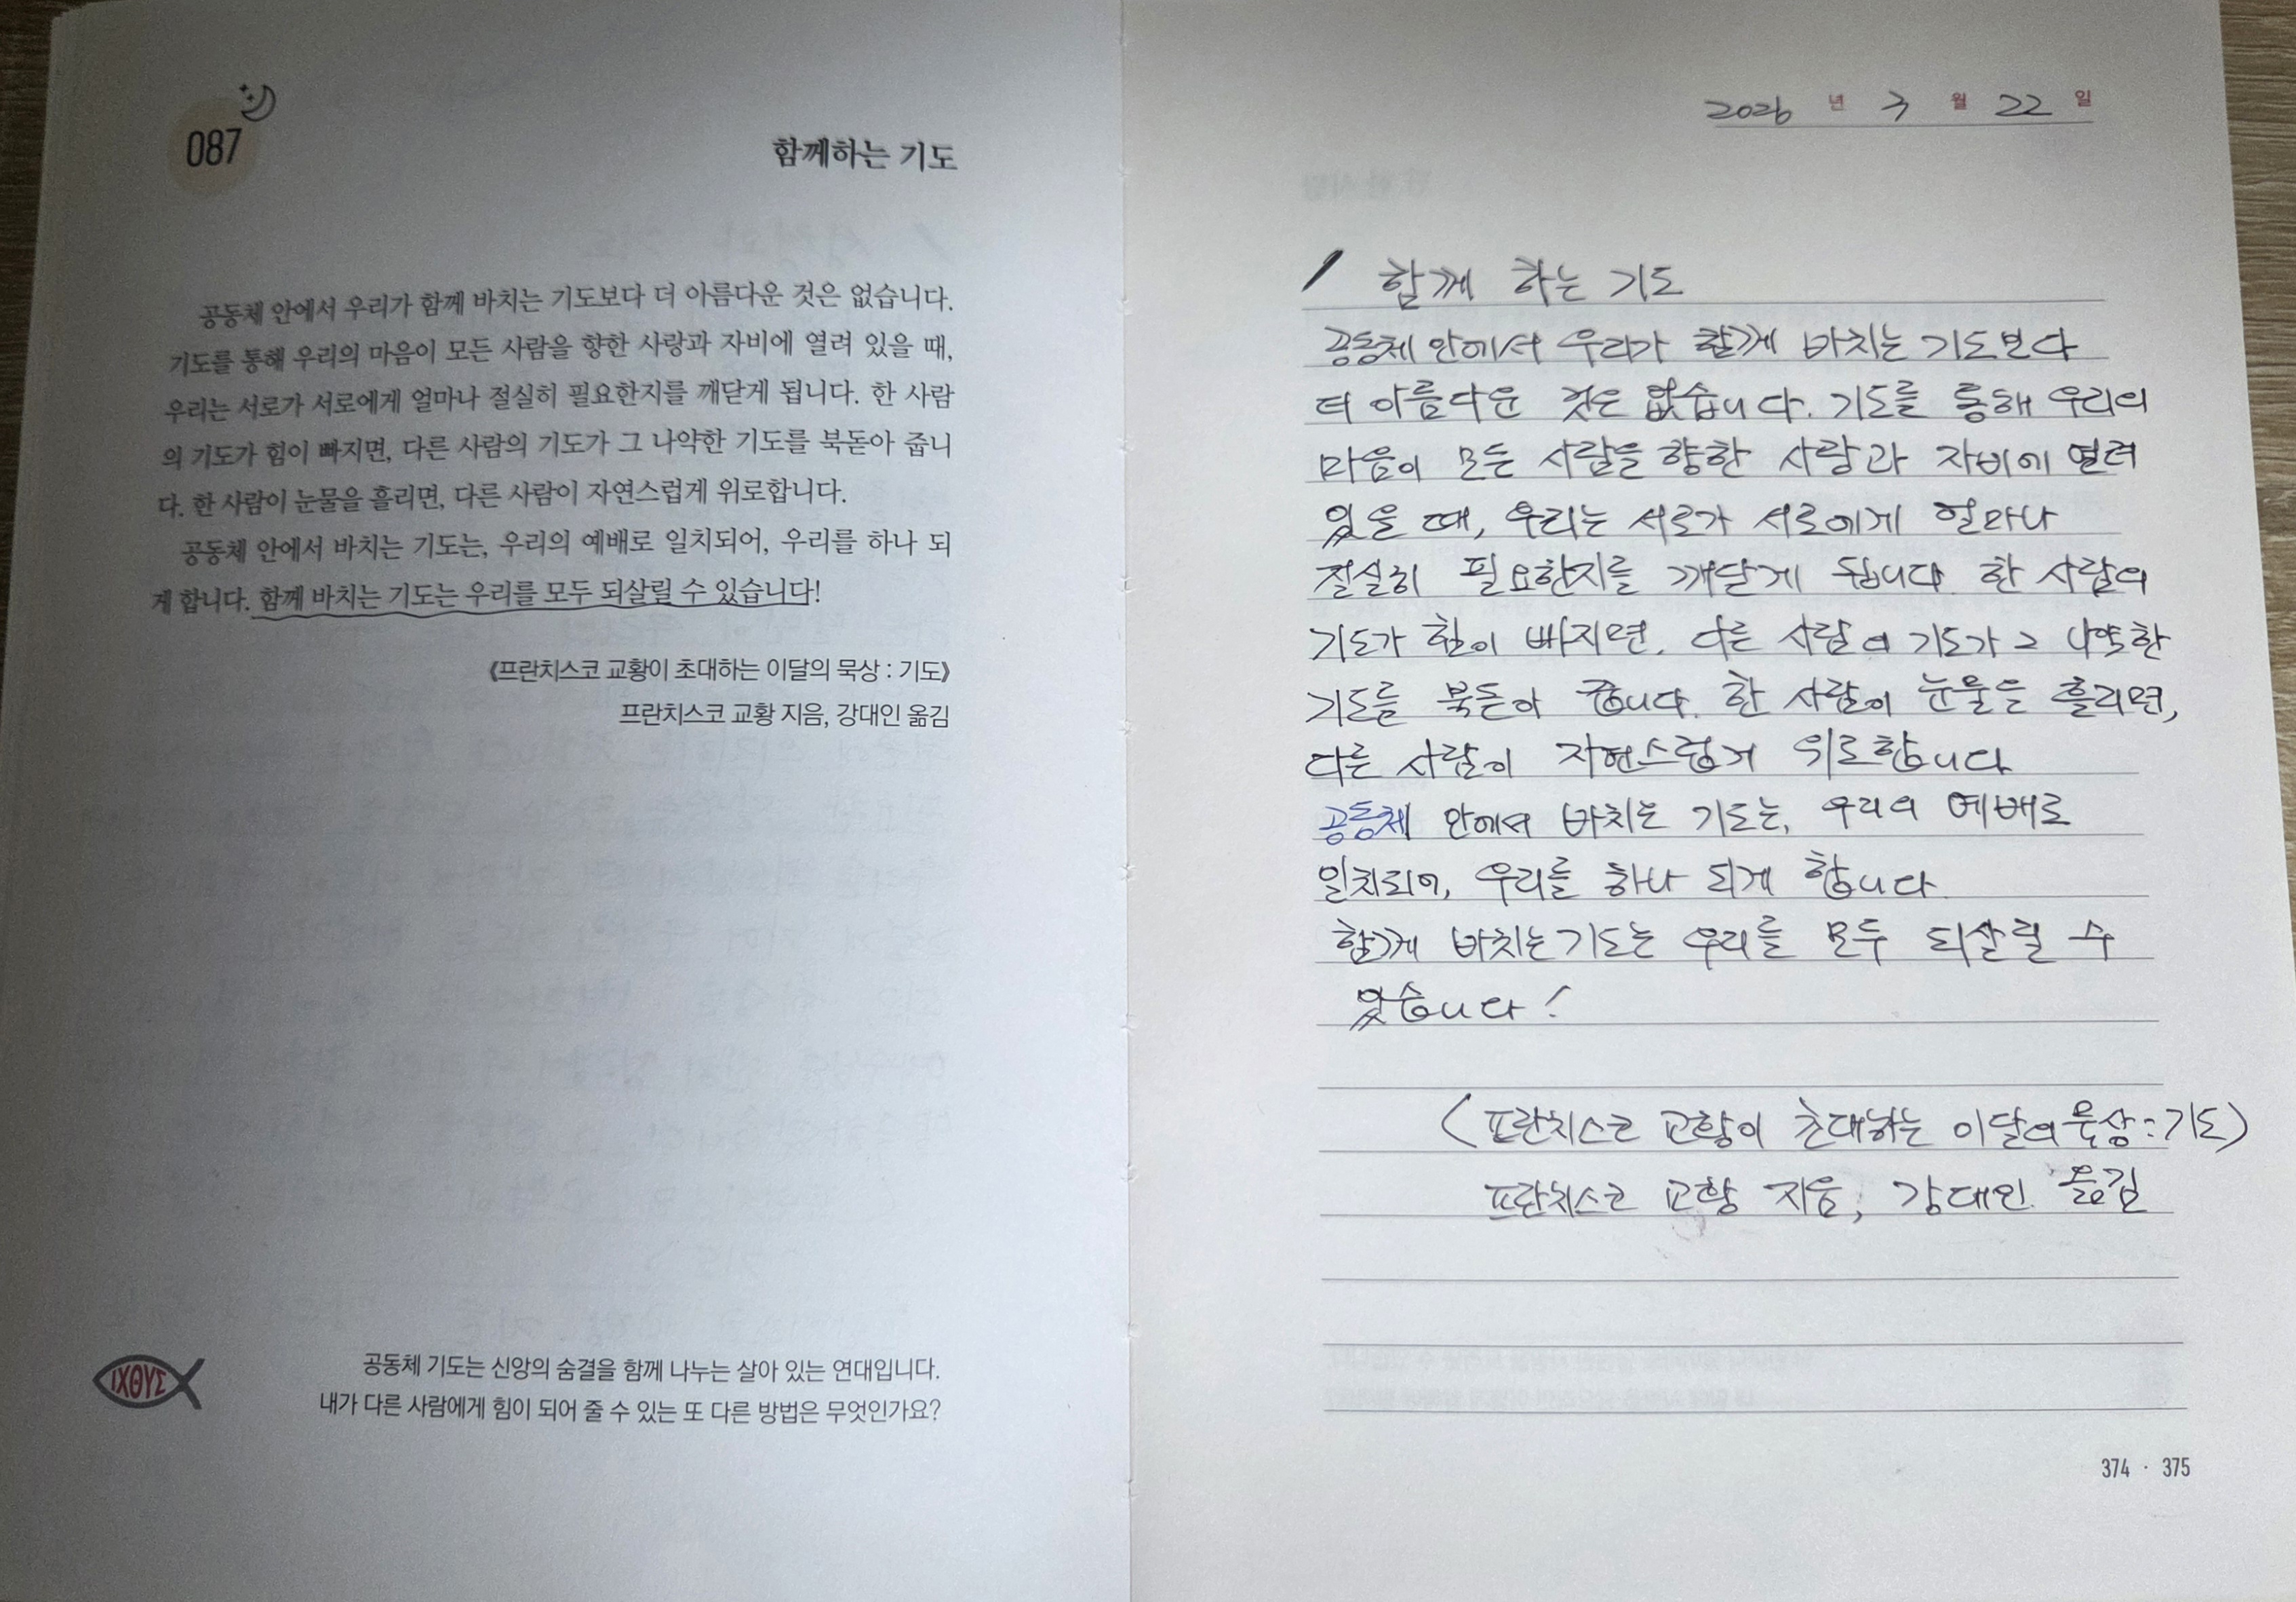 087
함께하는 기도
공동체 안에서 우리가 함께 바치는 기도보다 더 아름다운 것은 없습니다.
기도를 통해 우리의 마음이 모든 사람을 향한 사랑과 자비에 열려 있을 때,
우리는 서로가 서로에게 얼마나 절실히 필요한지를 깨닫게 됩니다. 한 사람
의 기도가 힘이 빠지면, 다른 사람의 기도가 그 나약한 기도를 북돋아 줍니
다. 한 사람이 눈물을 흘리면, 다른 사람이 자연스럽게 위로합니다.
공동체 안에서 바치는 기도는, 우리의 예배로 일치되어, 우리를 하나 되
게 합니다. 함께 바치는 기도는 우리를 모두 되살릴 수 있습니다!
《프란치스코 교황이 초대하는 이달의 묵상 : 기도》
프란치스코 교황 지음, 강대인 옮김
ΙΧΘΥΣ
공동체 기도는 신앙의 숨결을 함께 나누는 살아 있는 연대입니다.
내가 다른 사람에게 힘이 되어 줄 수 있는 또 다른 방법은 무엇인가요?
2026 년 3 월 22 일
/ 함께 하는 기도
공동체 안에서 우리가 함께 바치는 기도보다
더 아름다운 것은 없습니다. 기도를 통해 우리의
마음이 모든 사람을 향한 사랑과 자비에 열려
있을 때, 우리는 서로가 서로에게 얼마나
절실히 필요한지를 깨닫게 됩니다. 한 사람의
기도가 힘이 빠지면, 다른 사람의 기도가 그 나약한
기도를 북돋아 줍니다. 한 사람이 눈물을 흘리면,
다른 사람이 자연스럽게 위로합니다
공동체 안에서 바치는 기도는, 우리의 예배로
일치되어, 우리를 하나 되게 합니다.
함께 바치는 기도는 우리를 모두 되살릴 수
있습니다!
(프란치스코 교황이 초대하는 이달의 묵상 : 기도)
프란치스코 교황 지음, 강대인 옮김
374 · 375